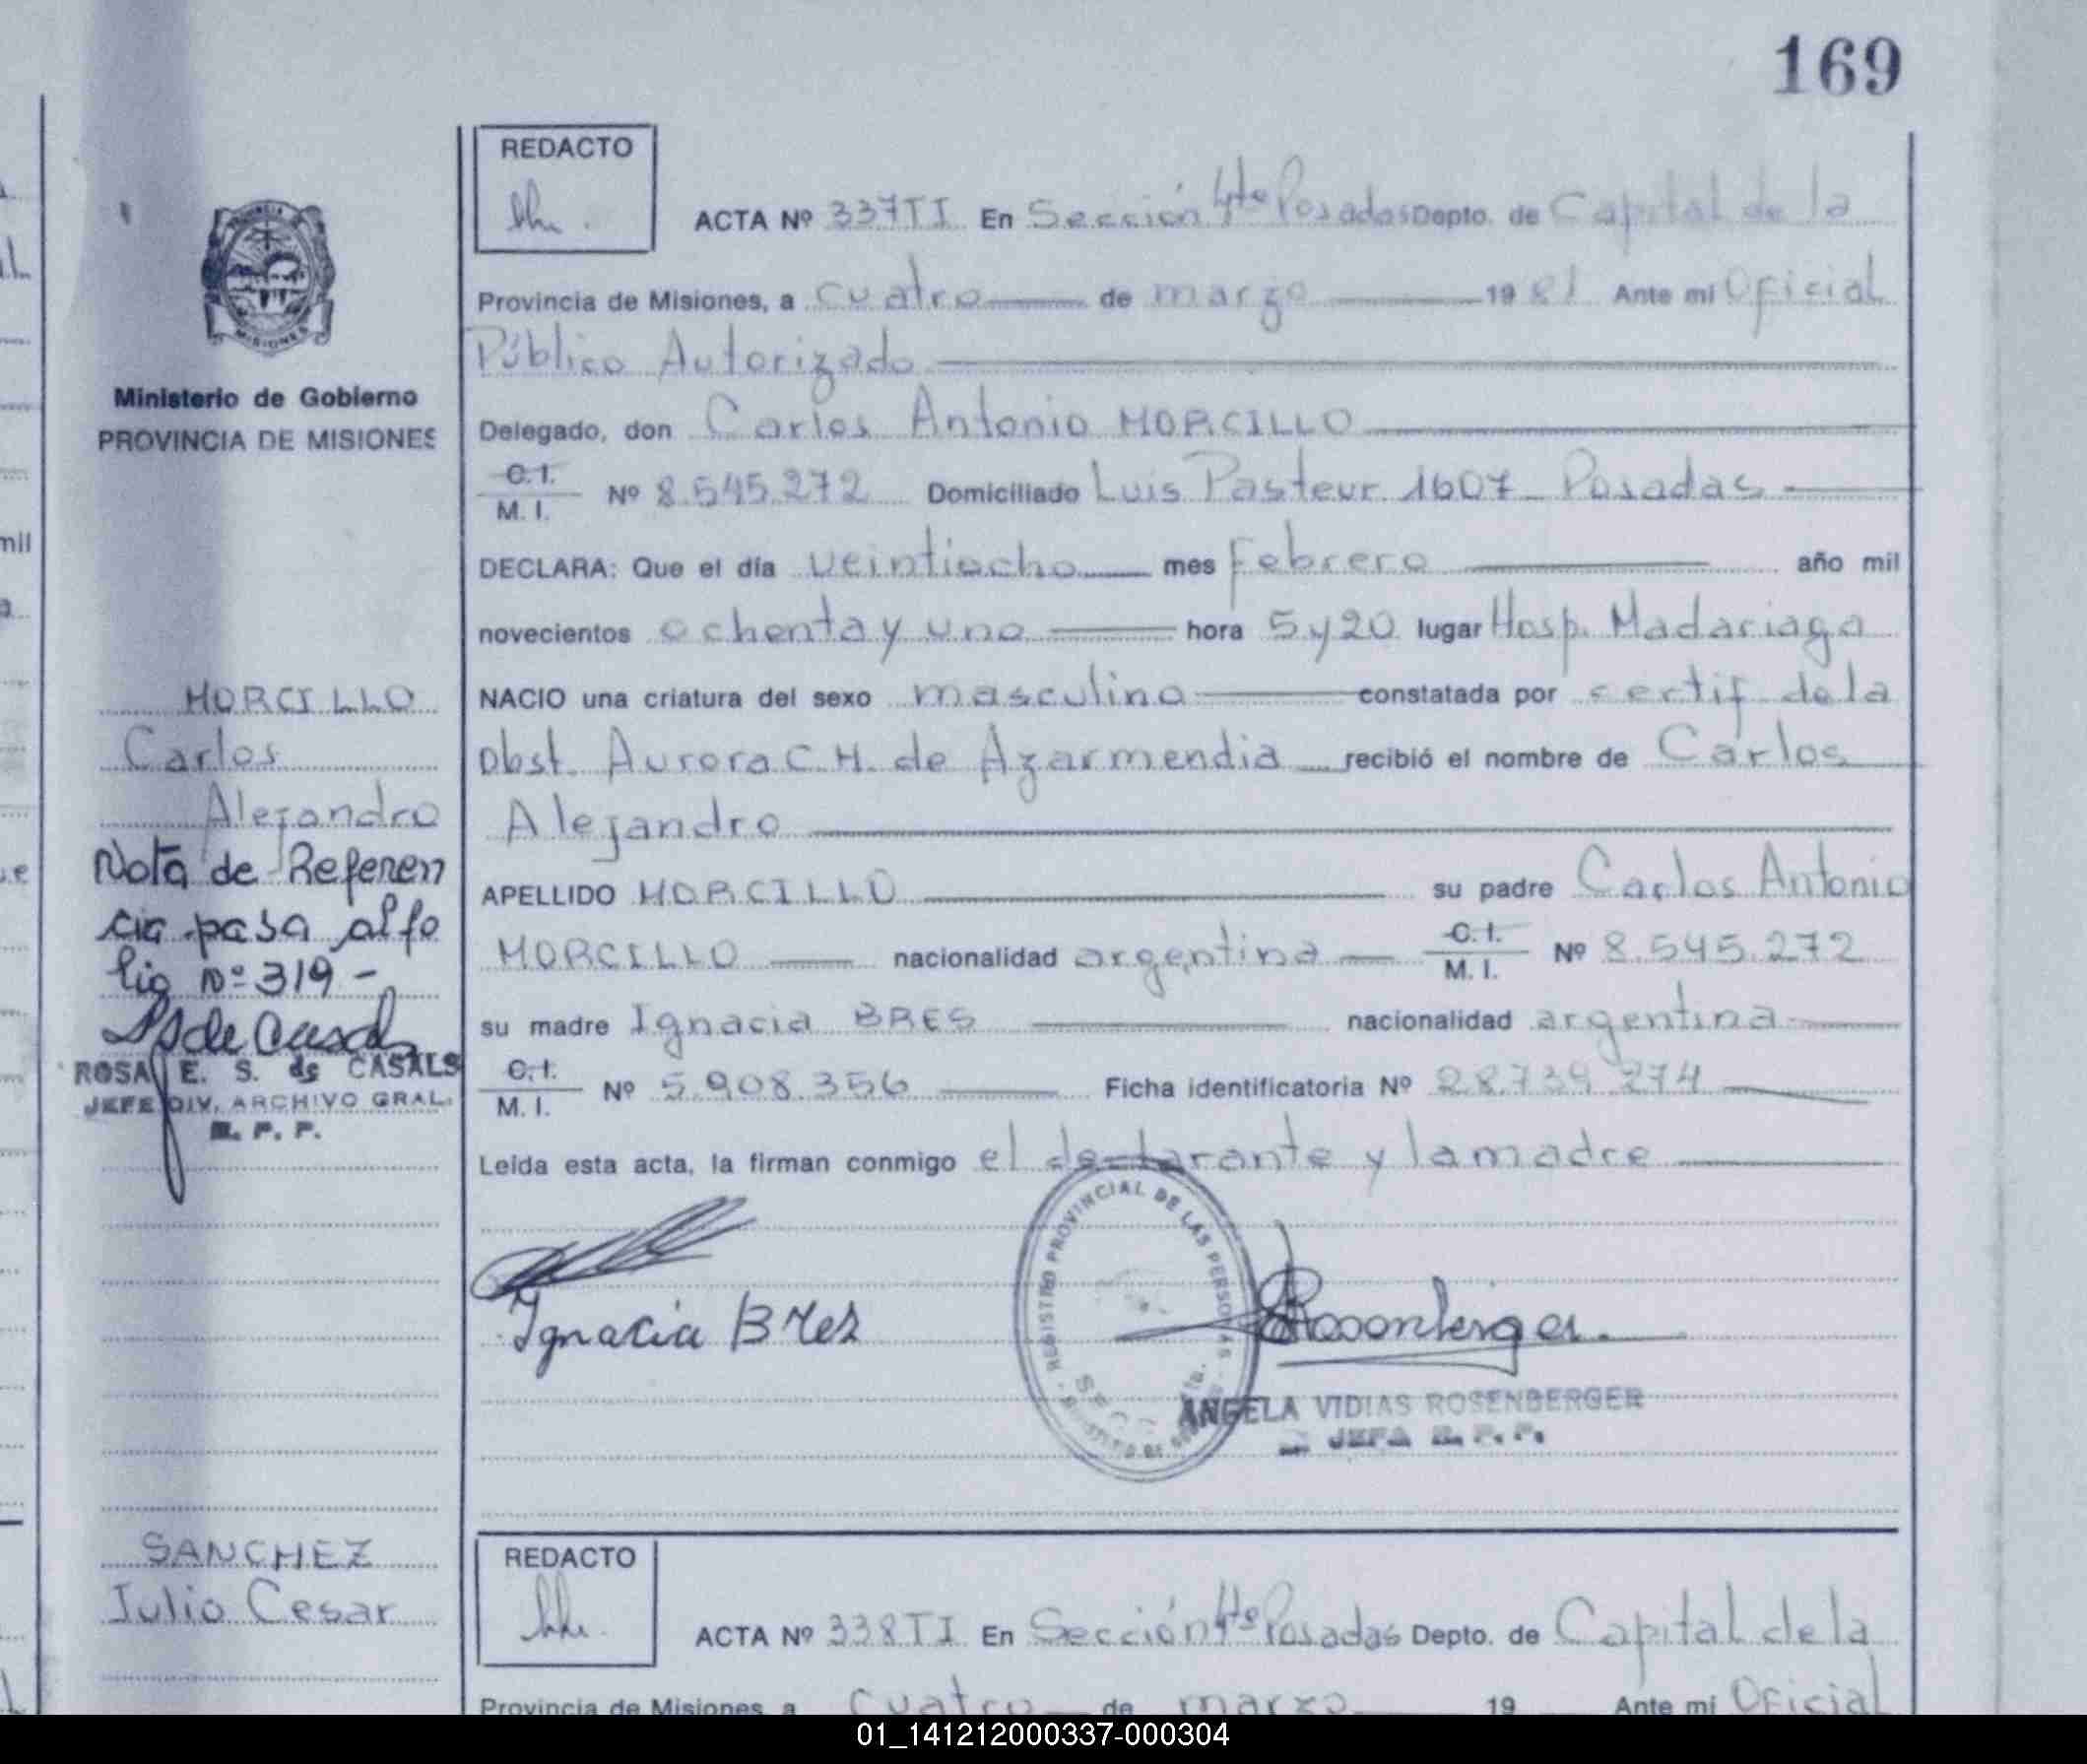 169
REDACTO
ACTA Nº 337TI En Sección 4ta Posadas Depto. de Capital de la
Provincia de Misiones, a cuatro de marzo 1981 Ante mi Oficial
Público Autorizado
Delegado, don Carlos Antonio MORCILLO
C.I.
M.I. Nº 8.545.272 Domiciliado Luis Pasteur 1607 - Posadas
DECLARA: Que el día veintiocho mes Febrero año mil
novecientos ochenta y uno hora 5 y 20 lugar Hosp. Madariaga
NACIO una criatura del sexo masculino constatada por certif de la
Obst. Aurora C.H. de Azarmendia recibió el nombre de Carlos
Alejandro
APELLIDO MORCILLO su padre Carlos Antonio
MORCILLO nacionalidad argentina C.I.
M.I. Nº 8.545.272
su madre Ignacia BRES nacionalidad argentina
C.I.
M.I. Nº 5.908.356 Ficha identificatoria Nº 28.739.274
Leída esta acta, la firman conmigo el declarante y la madre
Ignacia Bres
Rosenberger
REGISTRO PROVINCIAL DE LAS PERSONAS
ANGELA VIDIAS ROSENBERGER
JEFA R. P. P.
MISIONES
Ministerio de Gobierno
PROVINCIA DE MISIONES
MORCILLO
Carlos
Alejandro
Nota de Referen
cia pasa al fo
lio Nº 319 -
S de Casals
ROSA E. S. de CASALS
JEFE DIV. ARCHIVO GRAL.
R. P. P.
SANCHEZ
Julio Cesar
REDACTO
ACTA Nº 338TI En Sección 4ta Posadas Depto. de Capital de la
Provincia de Misiones a cuatro de marzo 19 Ante mi Oficial
01_141212000337-000304